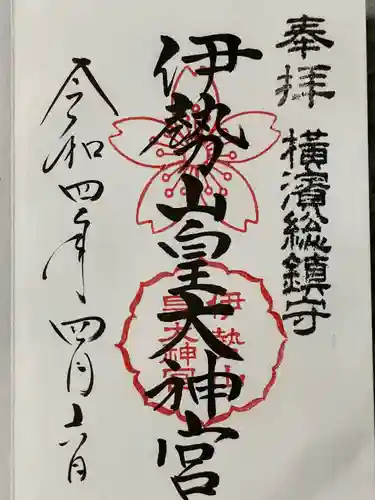 奉拝 横濱総鎮守
伊勢山皇大神宮
伊勢山
皇大神宮
令和四年四月十六日